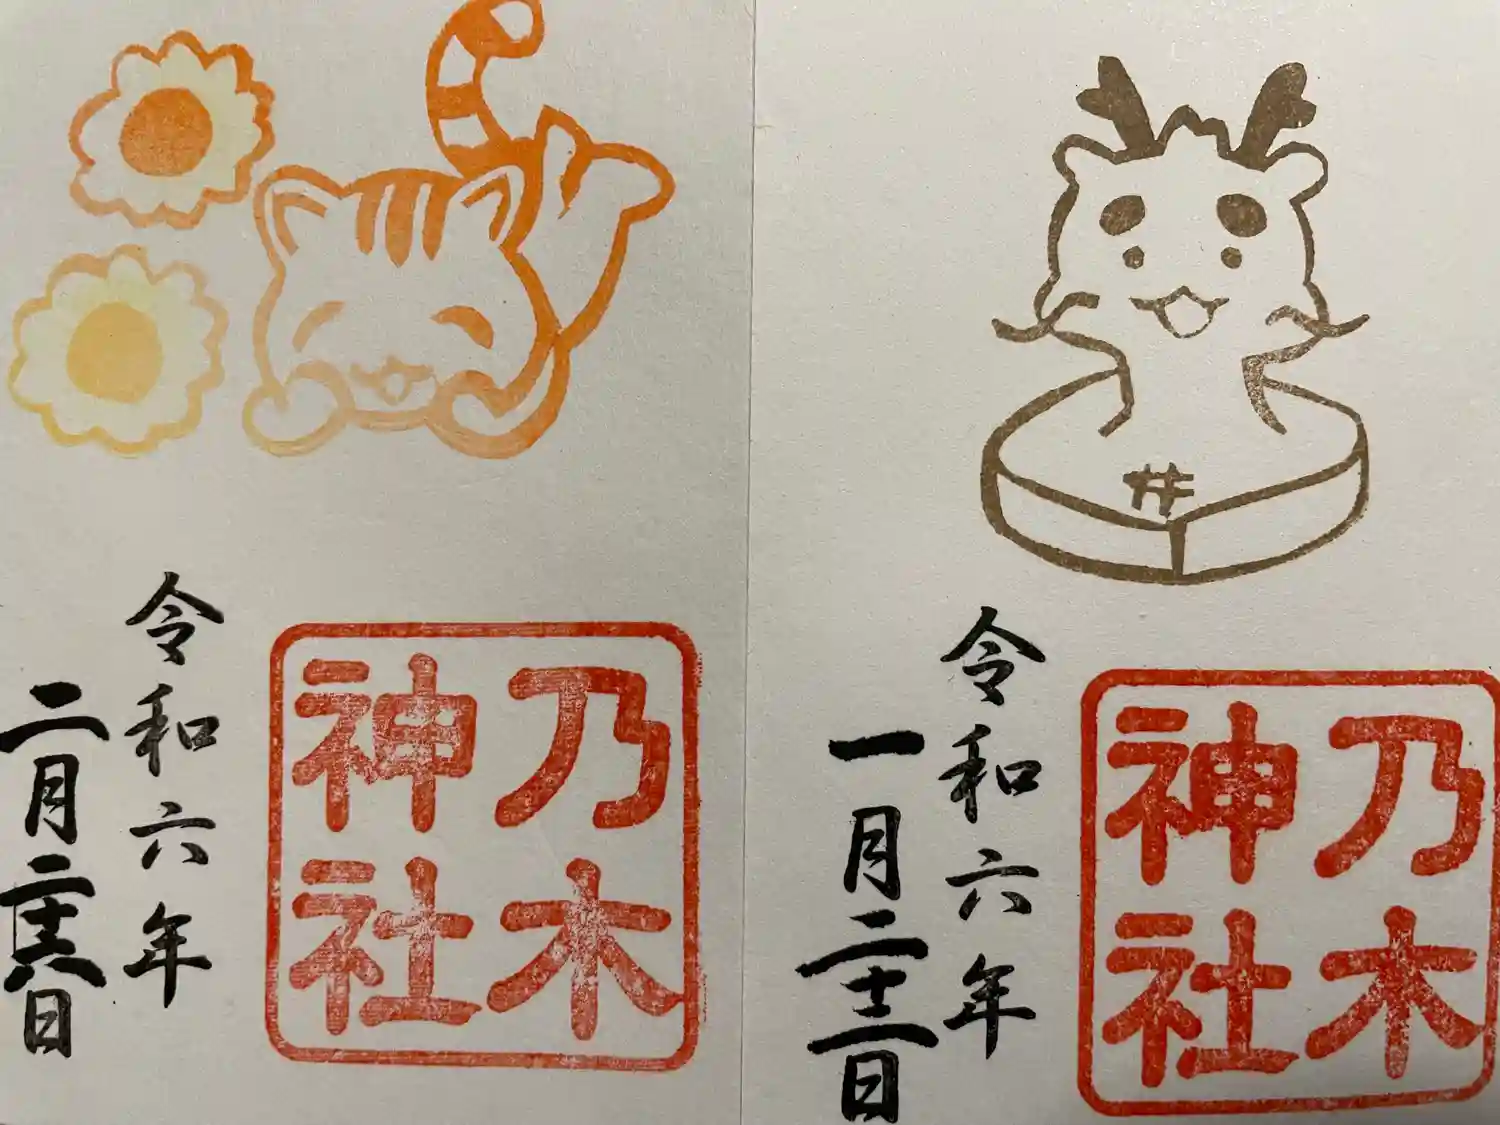 乃木
神社
令和六年
一月二十二日
乃木
神社
令和六年
二月二十六日